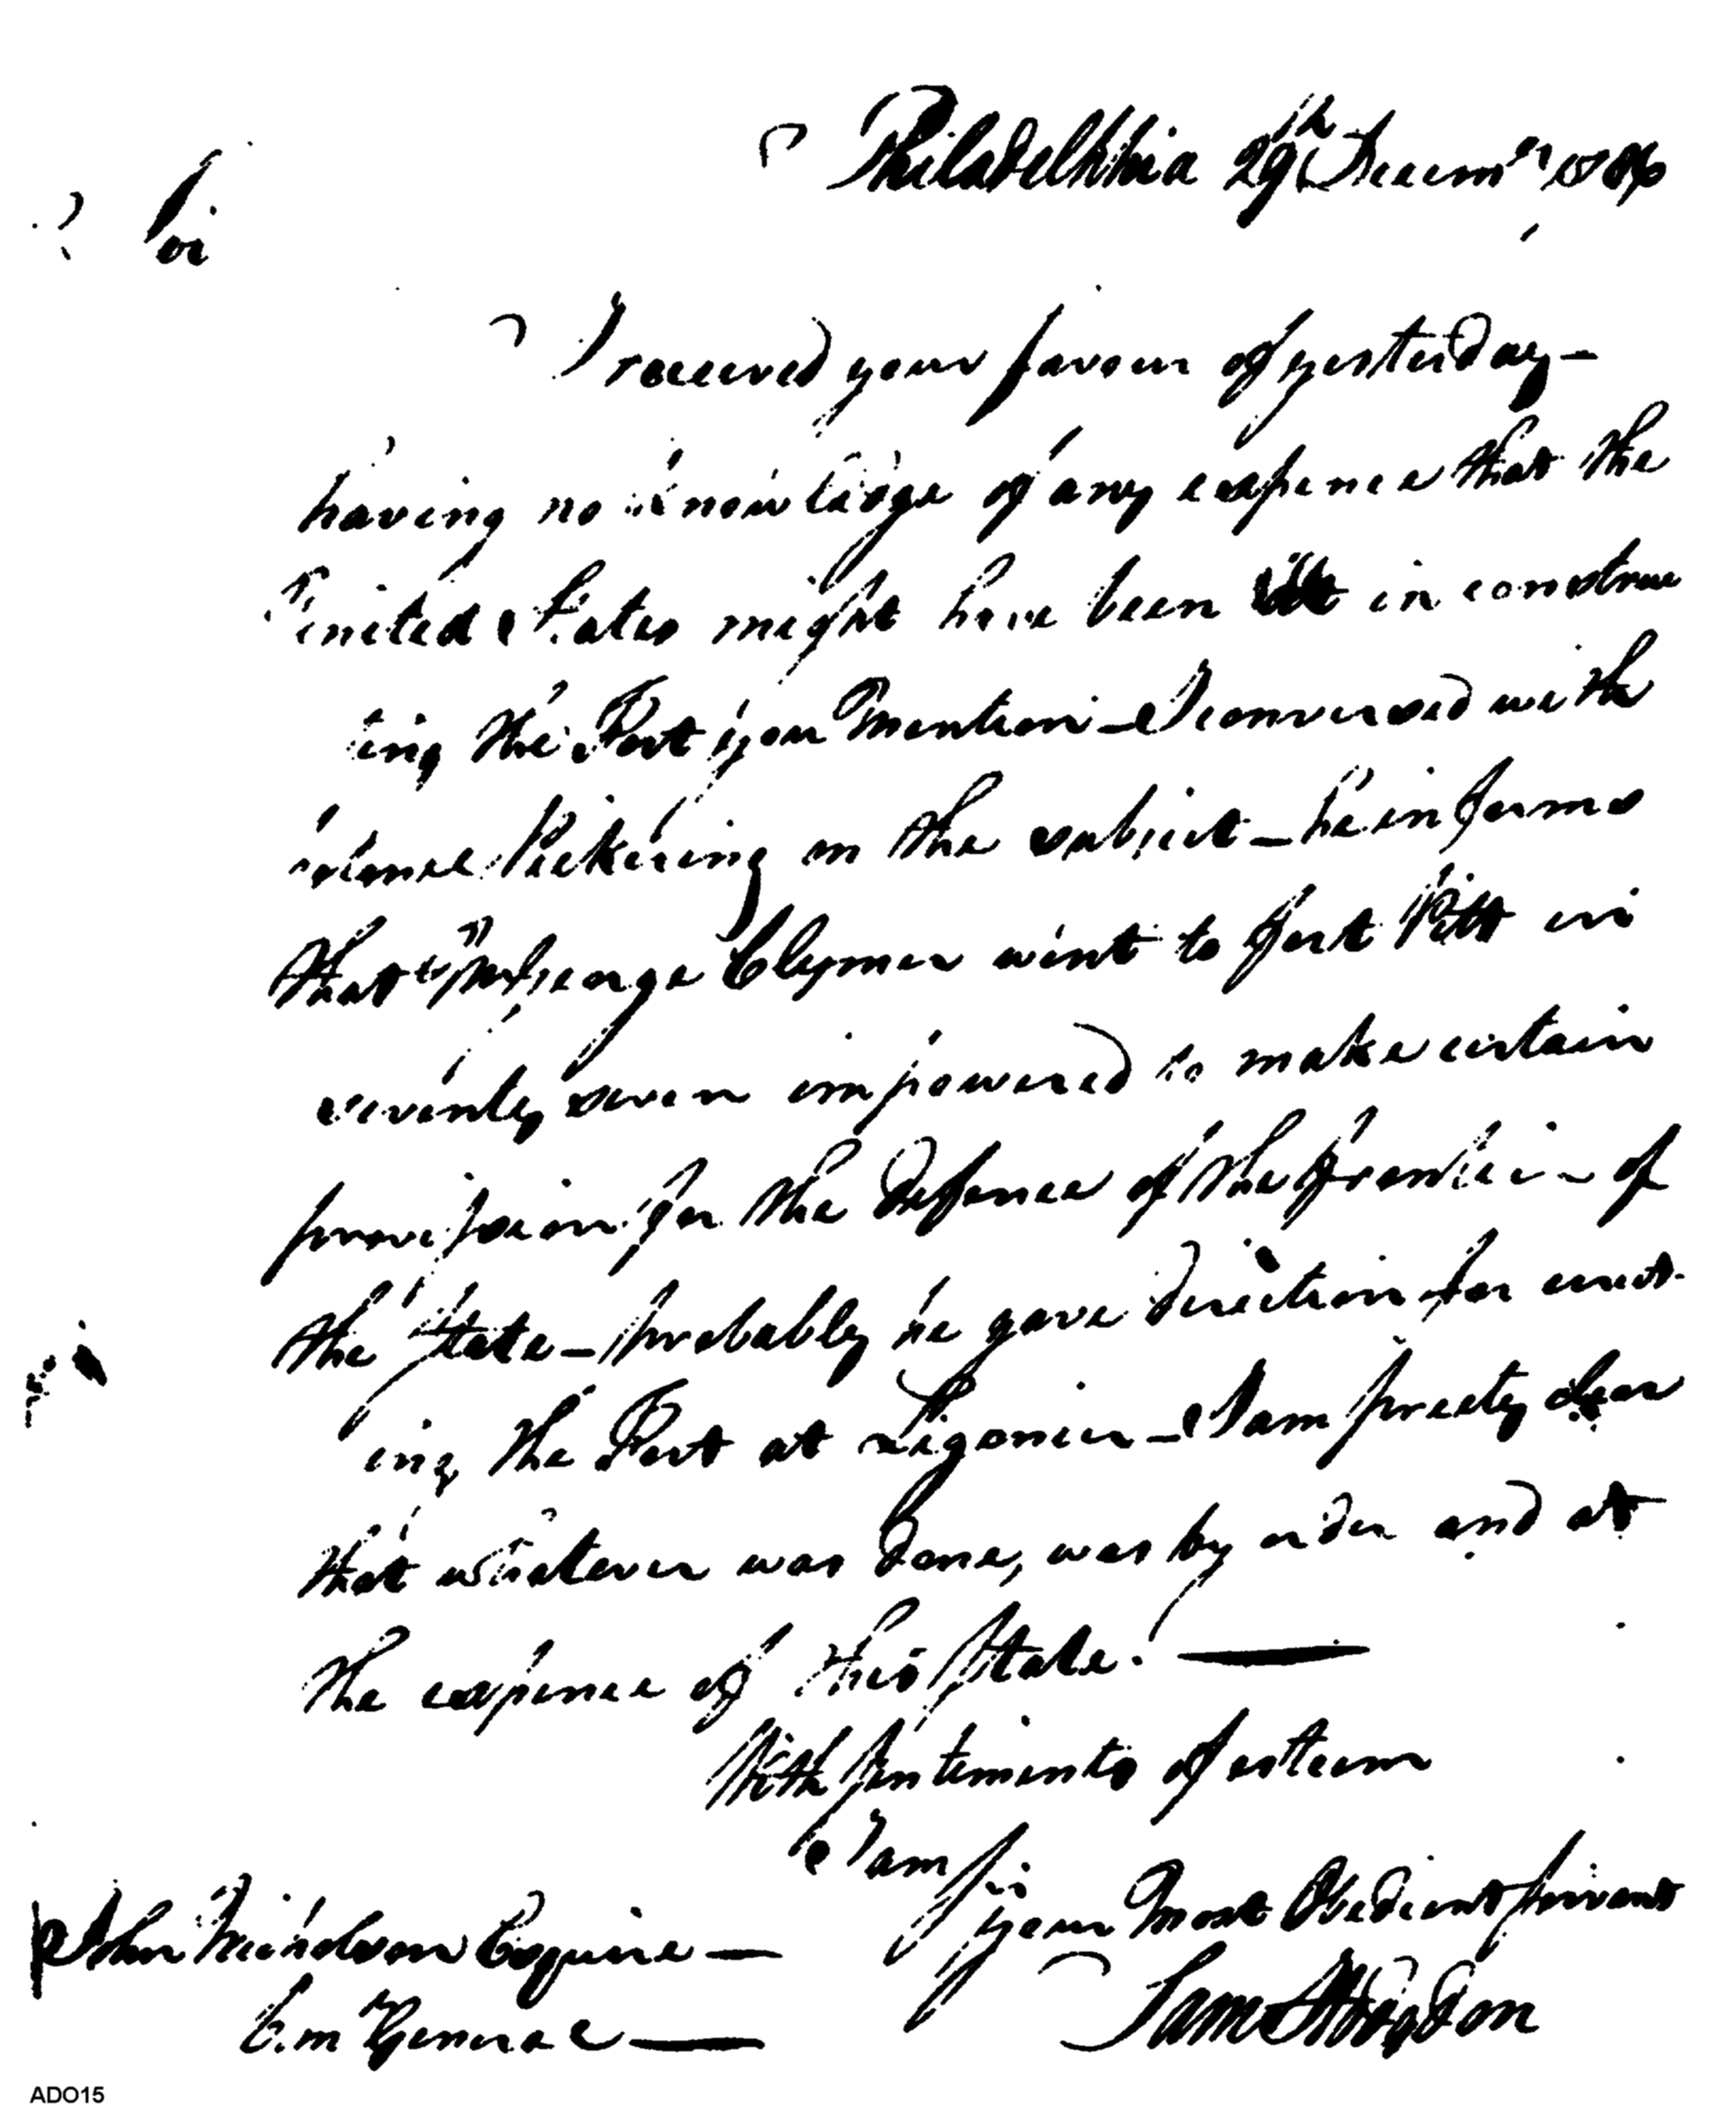 Philadelphia 29th Decemr 1786
Sir
I received your favour of yesterday —
having no knowledge of any expence that the
United States might have been in construc
ting the Fort you Mention — I conversed with
Pickering on the subject — he informs
that George Clymer went to fort Pitt in
seventy seven impowered to make certain
provision for the defence of the frontier of
the State — probably he gave direction for erect-
ing the Fort at Ligonier — I am pretty clear
that whatever was done, was by order and at
the expence of this State. —
With Sentiments of esteem
I am Sir
your Most Obedient servant
John Nicholson Esquire —
Com General —
ADO15